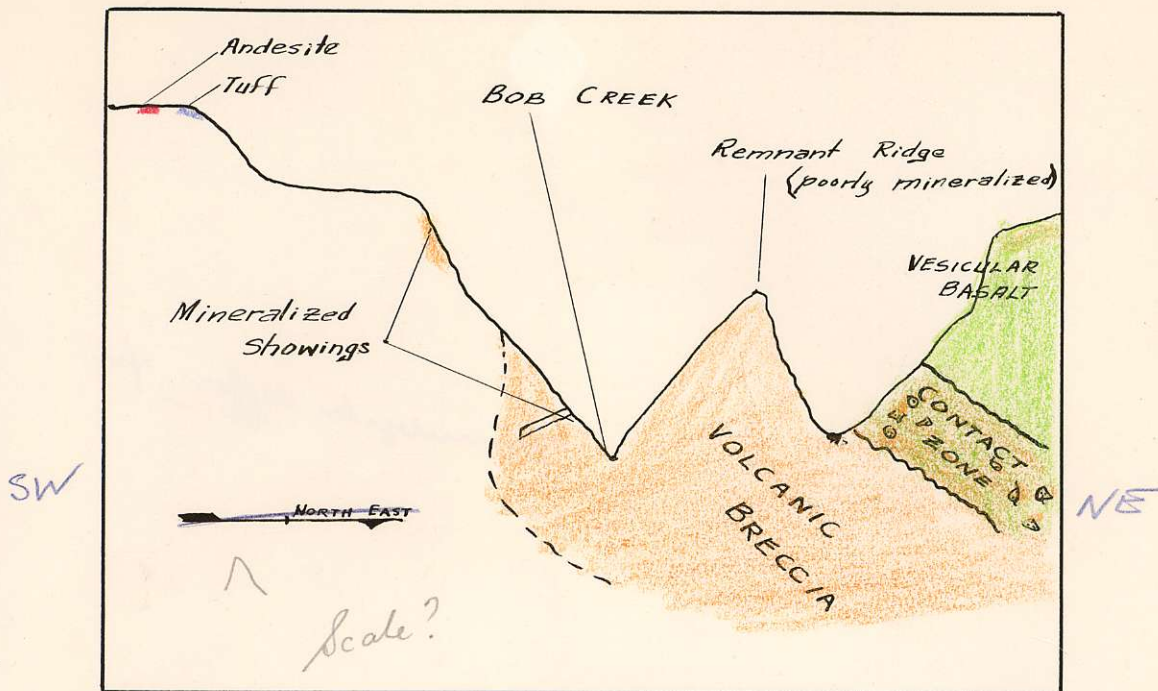 Andesite
Tuff
BOB CREEK
Remnant Ridge
(poorly mineralized)
VESICULAR
BASALT
Mineralized
Showings
CONTACT
ZONE
VOLCANIC
BRECCIA
SW
NORTH EAST
NE
Scale?